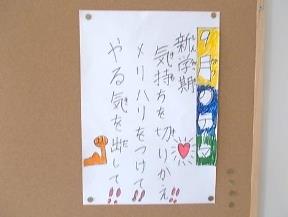 9月のテーマ
新学期
気持ちを切りかえ
メリハリをつけて
やる気を出して!!